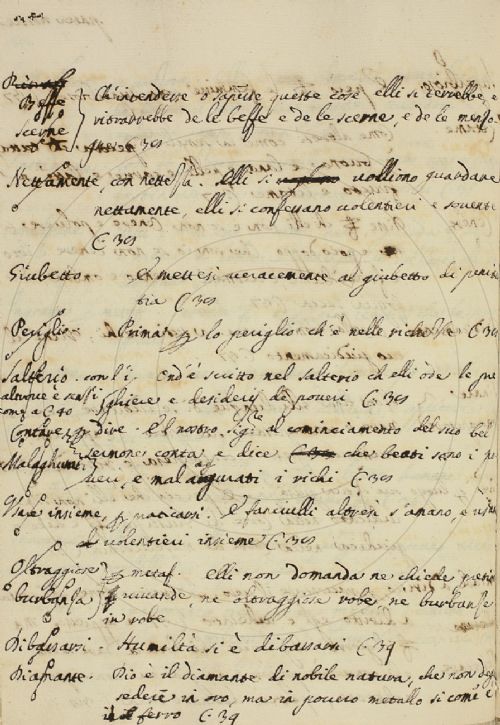 Beffe
Scerne
Chi intendesse o sapesse queste cose elli si terrebbe, e
ritrarrebbe de le beffe e de le scerne, e de le
C. 38
Nettamente, con nettezza. Elli si vogliono volliono guardare
nettamente, elli si confessano volentieri e sovente
C. 38
Giubetto e mettesi veracemente al giubetto di penite
tia C. 38
Periglio. Prima lo periglio ch'è nelle richesse C. 38
Salterio. con l'i. Ond'è scritto nel salterio ch'elli ode le pre
altrove e
come a C. 40 ghiere e desiderii de poveri C. 38
Contare dire. E'l nostro sig.re al cominciamento del suo bel
sermone conta e dice che beati sono i po
veri, e mal agurati i richi C. 38
Usare insieme, E fancivelli altresì s'amano, e
volentieri insieme C. 38
Oltraggiose metaf. elli non domanda ne chiede
burbansa vivande, ne oltraggiose robe, nè burbanse
in robe
Dibassarsi. Humilità si è dibassarsi C. 39
Diamante. Dio è il diamante di nobile natura, che non
sedere in oro, ma in povero metallo si com'è
ferro C. 39